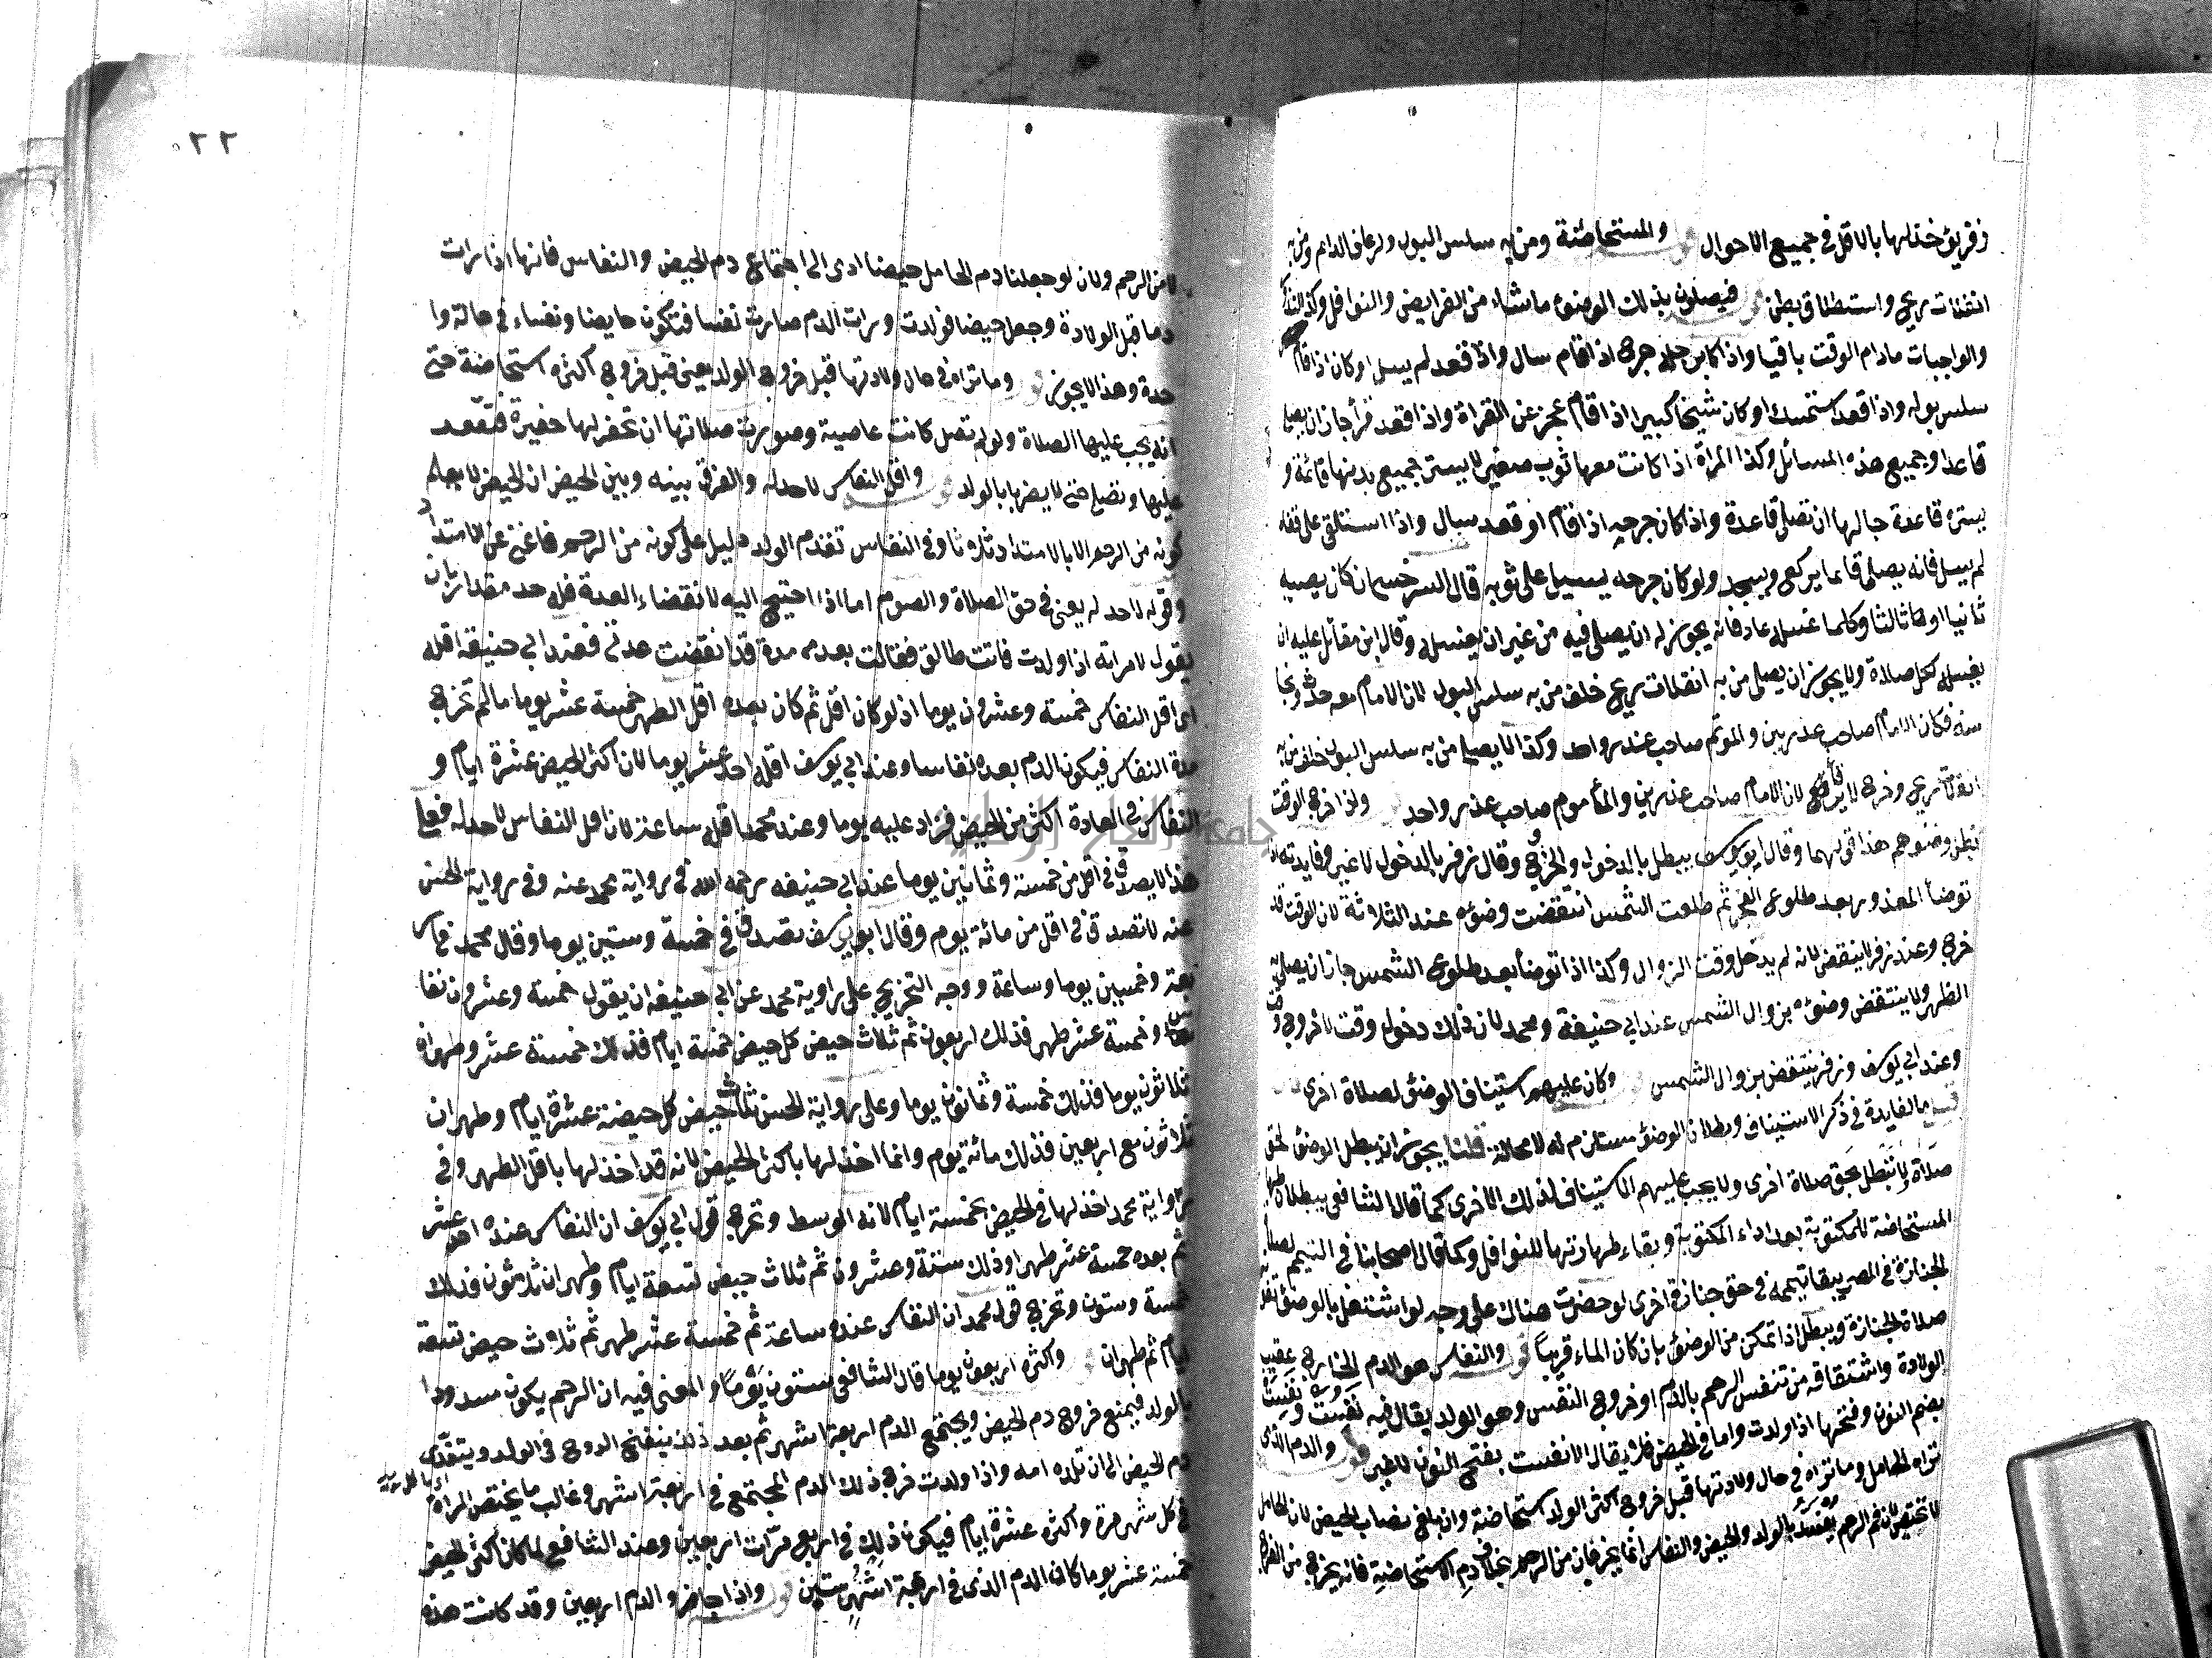 زفريق خذ لها بالاقل في جميع الاحوال والمستحاضة ومن به سلس البول والرعاف الدايم ومن به
انفلات ريح واستطلاق بطن فيصلون بذلك الوضوء ما شاء من الفرايض والنوافل وكذا النذر
والواجبات مادام الوقت باقيا واذا كان حلقه جرح اذا قام سال واذا قعد لم يسل او كان اذا قام
سلس بوله واذا قعد استمسك او كان شيخا كبيرا اذا قام عجز عن القراة واذا قعد قرأ جاز ان يصلي
قاعدا وجميع هذه المسائل وكذا المرأة اذا كانت معها ثوب صغير لا يستر جميع بدنها قائمة و
يستره قاعدة جاز لها ان تصلي قاعدة واذا كان جرحه اذا قام او قعد سال واذا استلقى على قفاه
لم يسل فانه يصلي قائما يركع ويسجد ولو كان جرحه يسيل على ثوبه قال السرخسي ان كان يصيبه
ثانيا او ثالثا وكلما غسله عاد فانه يجوز له ان يصلي فيه من غير ان يغسله وقال ابن مقاتل عليه ان
يغسله لكل صلاة ولا يجوز ان يصلي من به انفلات ريح خلف من به سلس البول لان الامام معه حدث ونجا
سة فكان الامام صاحب عذرين والمؤتم صاحب عذر واحد وكذا لا يصلي من به سلس البول خلف من به
انفلات ريح وجرح لا يرقأ لان الامام صاحب عذرين والمأموم صاحب عذر واحد واذا خرج الوقت
بطل وضوءهم هذا قولهما وقال ابو يوسف يبطل بالدخول والخروج وقال زفر بالدخول لا غير وفايدته اذا
توضأ المعذور بعد طلوع الفجر ثم طلعت الشمس انتقضت وضوءه عند الثلاثة لان الوقت قد
خرج وعند زفر لا ينتقض لانه لم يدخل وقت الزوال وكذا اذا توضأ بعد طلوع الشمس جاز ان يصلي به
الظهر ولا ينتقض وضوءه بزوال الشمس عند ابي حنيفة ومحمد لان ذلك دخول وقت لا خروج وقت
وعند ابي يوسف وزفر ينتقض بزوال الشمس وكان عليهم استيناف الوضوء لصلاة اخرى
ما الفايدة في ذكر الاستيناف وبطلان الوضوء مستلزم له لا محالة قلنا يجوز ان يبطل الوضوء لحق
صلاة ولا تبطل بحق صلاة اخرى ولا يجب عليهم الاستيناف لذلك الاخرى كما قال الشافعي ببطلان طهارة
المستحاضة للمكتوبة بعد اداء المكتوبة وبقاء طهارتها للنوافل وكما قال اصحابنا في التيمم لصلاة
الجنازة في المصر يبقا تيممه في حق جنازة اخرى لو حضرت هناك على وجه لو اشتغل بالوضوء تفوته
صلاة الجنازة ويبطل اذا تمكن من الوضوء بان كان الماء قريبا والنفاس هو الدم الخارج عقيب
الولادة واشتقاقه من تنفس الرحم بالدم او خروج النفس وهو الولد يقال فيه نفست ونفست
بضم النون وفتحها اذا ولدت واما في الحيض فلا يقال الا نفست بفتح النون لا غير والدم الذي
تراه الحامل وما تراه في حال ولادتها قبل خروج اكثر الولد استحاضة وان بلغ نصاب الحيض لان الحامل
لا تحيض لان فم الرحم ينسد بالولد والحيض والنفاس انما يخرجان من الرحم بخلاف دم الاستحاضة فانه يخرج من الفرج
٢٢
لا من الرحم ولان لو جعلنا دم الحامل حيضا ادى الى اجتماع دم الحيض والنفاس فانها اذا رات
دما قبل الولادة وجعل حيضا فولدت ورات الدم صارت نفسا فتكون حايضا ونفساء في حالة وا
حدة وهذا لا يجوز وما تراه في حال ولادتها قبل خروج الولد يعني قبل خروج اكثره استحاضة حتى
انه يجب عليها الصلاة ولو لم تصل كانت عاصية وصورت صلاتها ان تحفر لها حفيرة فتقعد
عليها وتصلي حتى لا يضر بها بالولد واقل النفاس لا حد له والفرق بينه وبين الحيض ان الحيض لا يعلم
كونه من الرحم الا بالامتداد ثلاثا وفي النفاس تقدم الولد دليل على كونه من الرحم فاغنى عن الامتداد
وقوله لا حد له يعني في حق الصلاة والصوم اما اذا احتيج اليه لانقضاء العدة فله حد مقدار بان
يقول لامراته اذا ولدت فانت طالق فقالت بعد مدة قد انقضت عدتي فعند ابي حنيفة اقله
اي اقل النفاس خمسة وعشرون يوما اذ لو كان اقل ثم كان بعده اقل الطهر خمسة عشر يوما مالم تخرج
مدة النفاس فيكون الدم بعده نفاسا وعند ابي يوسف اقله احد عشر يوما لان اكثر الحيض عشرة ايام و
النفاس في العادة اكثر من الحيض فزاد عليه يوما وعند محمد اقله ساعة لان اقل النفاس لا حد له فعلى
هذا لا يصدق في اقل من خمسة وثمانين يوما عند ابي حنيفه رحمه الله في رواية محمد عنه وفي رواية الحسن
عنه لا تصدق في اقل من مائة يوم وقال ابو يوسف تصدق في خمسة وستين يوما وقال محمد في ار
بعة وخمسين يوما وساعة ووجه التخريج على رواية محمد عن ابي حنيفه ان يقول خمسة وعشرون نفا
س وخمسة عشر طهر فذلك اربعون ثم ثلاث حيض كل حيض خمسة ايام فذلك خمسة عشر وطهران
ثلاثون يوما فذلك خمسة وثمانون يوما وعلى رواية الحسن ثلاث حيض كل حيضة عشرة ايام وطهران
ثلاثون مع اربعين فذلك مائة يوم وانما اخذ لها باكثر الحيض لانه قد اخذ لها باقل الطهر وفي
رواية محمد اخذ لها في الحيض بخمسة ايام لانه الوسط وتخرج قول ابي يوسف ان النفاس عنده احد عشر
ثم بعده خمسة عشر طهرا وذلك ستة وعشرون ثم ثلاث حيض تسعة ايام وطهران ثلاثون فذلك
خمسة وستون وتخرج قول محمد ان النفاس عنده ساعة ثم خمسة عشر طهر ثم ثلاث حيض تسعة
ايام ثم طهران واكثره اربعون يوما قال الشافعي ستون يوما والمعنى فيه ان الرحم يكون مسدودا
بالولد فيمنع خروج دم الحيض ويجتمع الدم اربعة اشهر ثم بعد ذلك ينفخ الروح في الولد ويتغذى
دم الحيض الى ان تلده امه واذا ولدت خرج ذلك الدم المجتمع في اربعة اشهر وغالب ما تحيض المراة
في كل شهر مرة واكثره عشرة ايام فيكون ذلك في اربع مرات اربعين وعند الشافعي لما كان اكثر الحيض
خمسة عشر يوما كان الدم الذي في اربعة اشهر ستين واذا جاوز الدم اربعين وقد كانت هذه